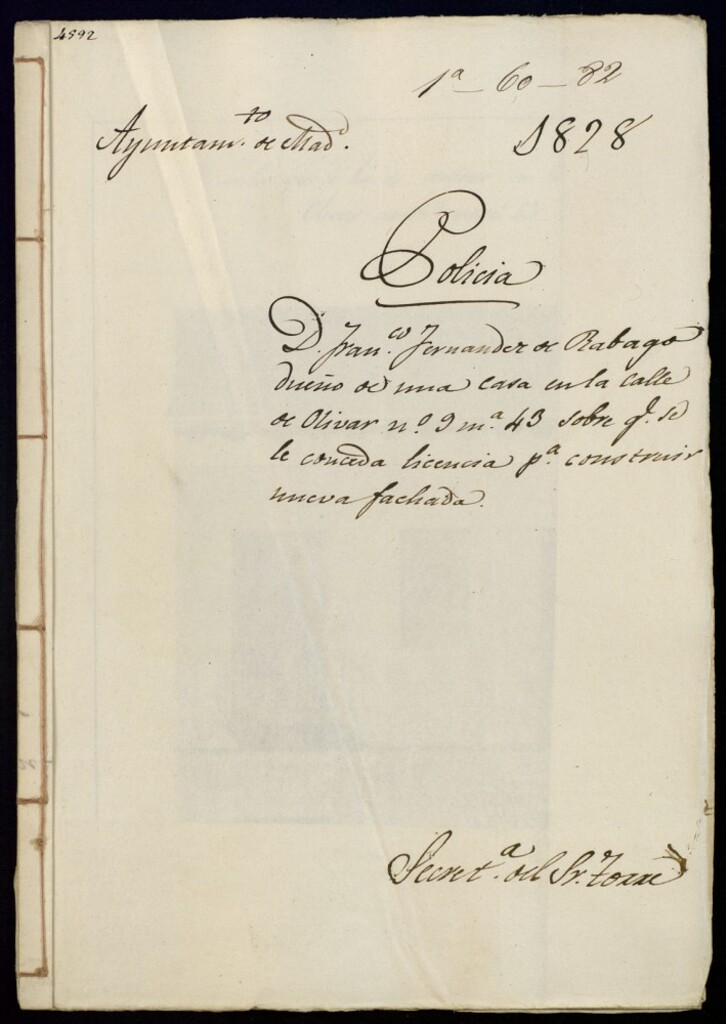 4592
1ª - 60 - 82
Ayuntam.to de Mad.d
1828
Policia
D. Fran.co Fernandez de Rabago
dueño de una casa en la calle
de Olivar nº 9 m.ª 43 sobre q.e se
le conceda licencia p.ª construir
nueva fachada.
Secret.ª del Sr. Torre